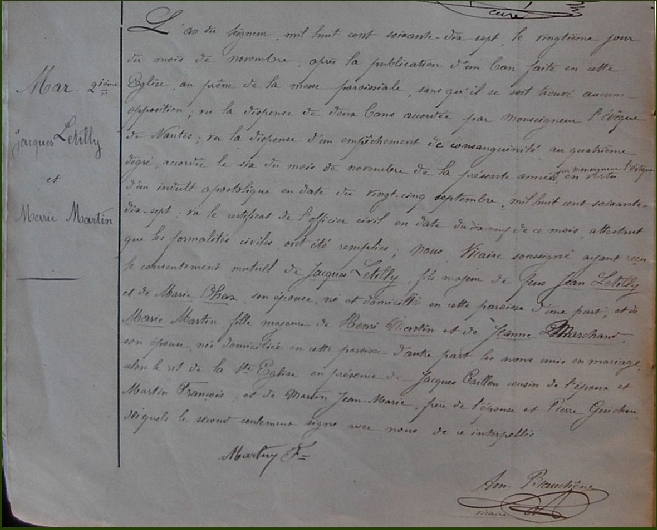 curé
L'an du Seigneur, mil huit cent soixante-dix sept, le vingtième jour
du mois de novembre, après la publication d'un ban faite en cette
Mar. 2ième
Eglise, au prône de la messe paroissiale, sans qu'il se soit trouvé aucune
opposition; vu la dispense de deux bans accordée par monseigneur l'évêque
de Nantes; vu la dispense d'un empêchement de consanguinité au quatrième
Jacques Letilly
degré, accordée le six du mois de novembre de la présente année par monseigneur l'évêque en vertu
et
d'un indult apostolique en date du vingt-cinq septembre, mil huit cent soixante-
Marie Martin
dix-sept; vu le certificat de l'officier civil en date du de ce mois, attestant
que les formalités civiles ont été remplies; nous, Vicaire soussigné ayant reçu
le consentement mutuel de Jacques Letilly, fils majeur de feus Jean Letilly
et de Marie son épouse, né et domicilié en cette paroisse d'une part; et de
Marie Martin fille majeure de Henri Martin et de Jeanne Marchand,
son épouse, née domiciliée en cette paroisse d'autre part les avons unis en mariage,
selon le rit de la Ste Eglise en présence de Jacques cousin de l'époux et
Martin François, et de Martin Jean-Marie, frère de l'épouse et Pierre
desquels le second seulement signe avec nous de ce interpellés
Martin F